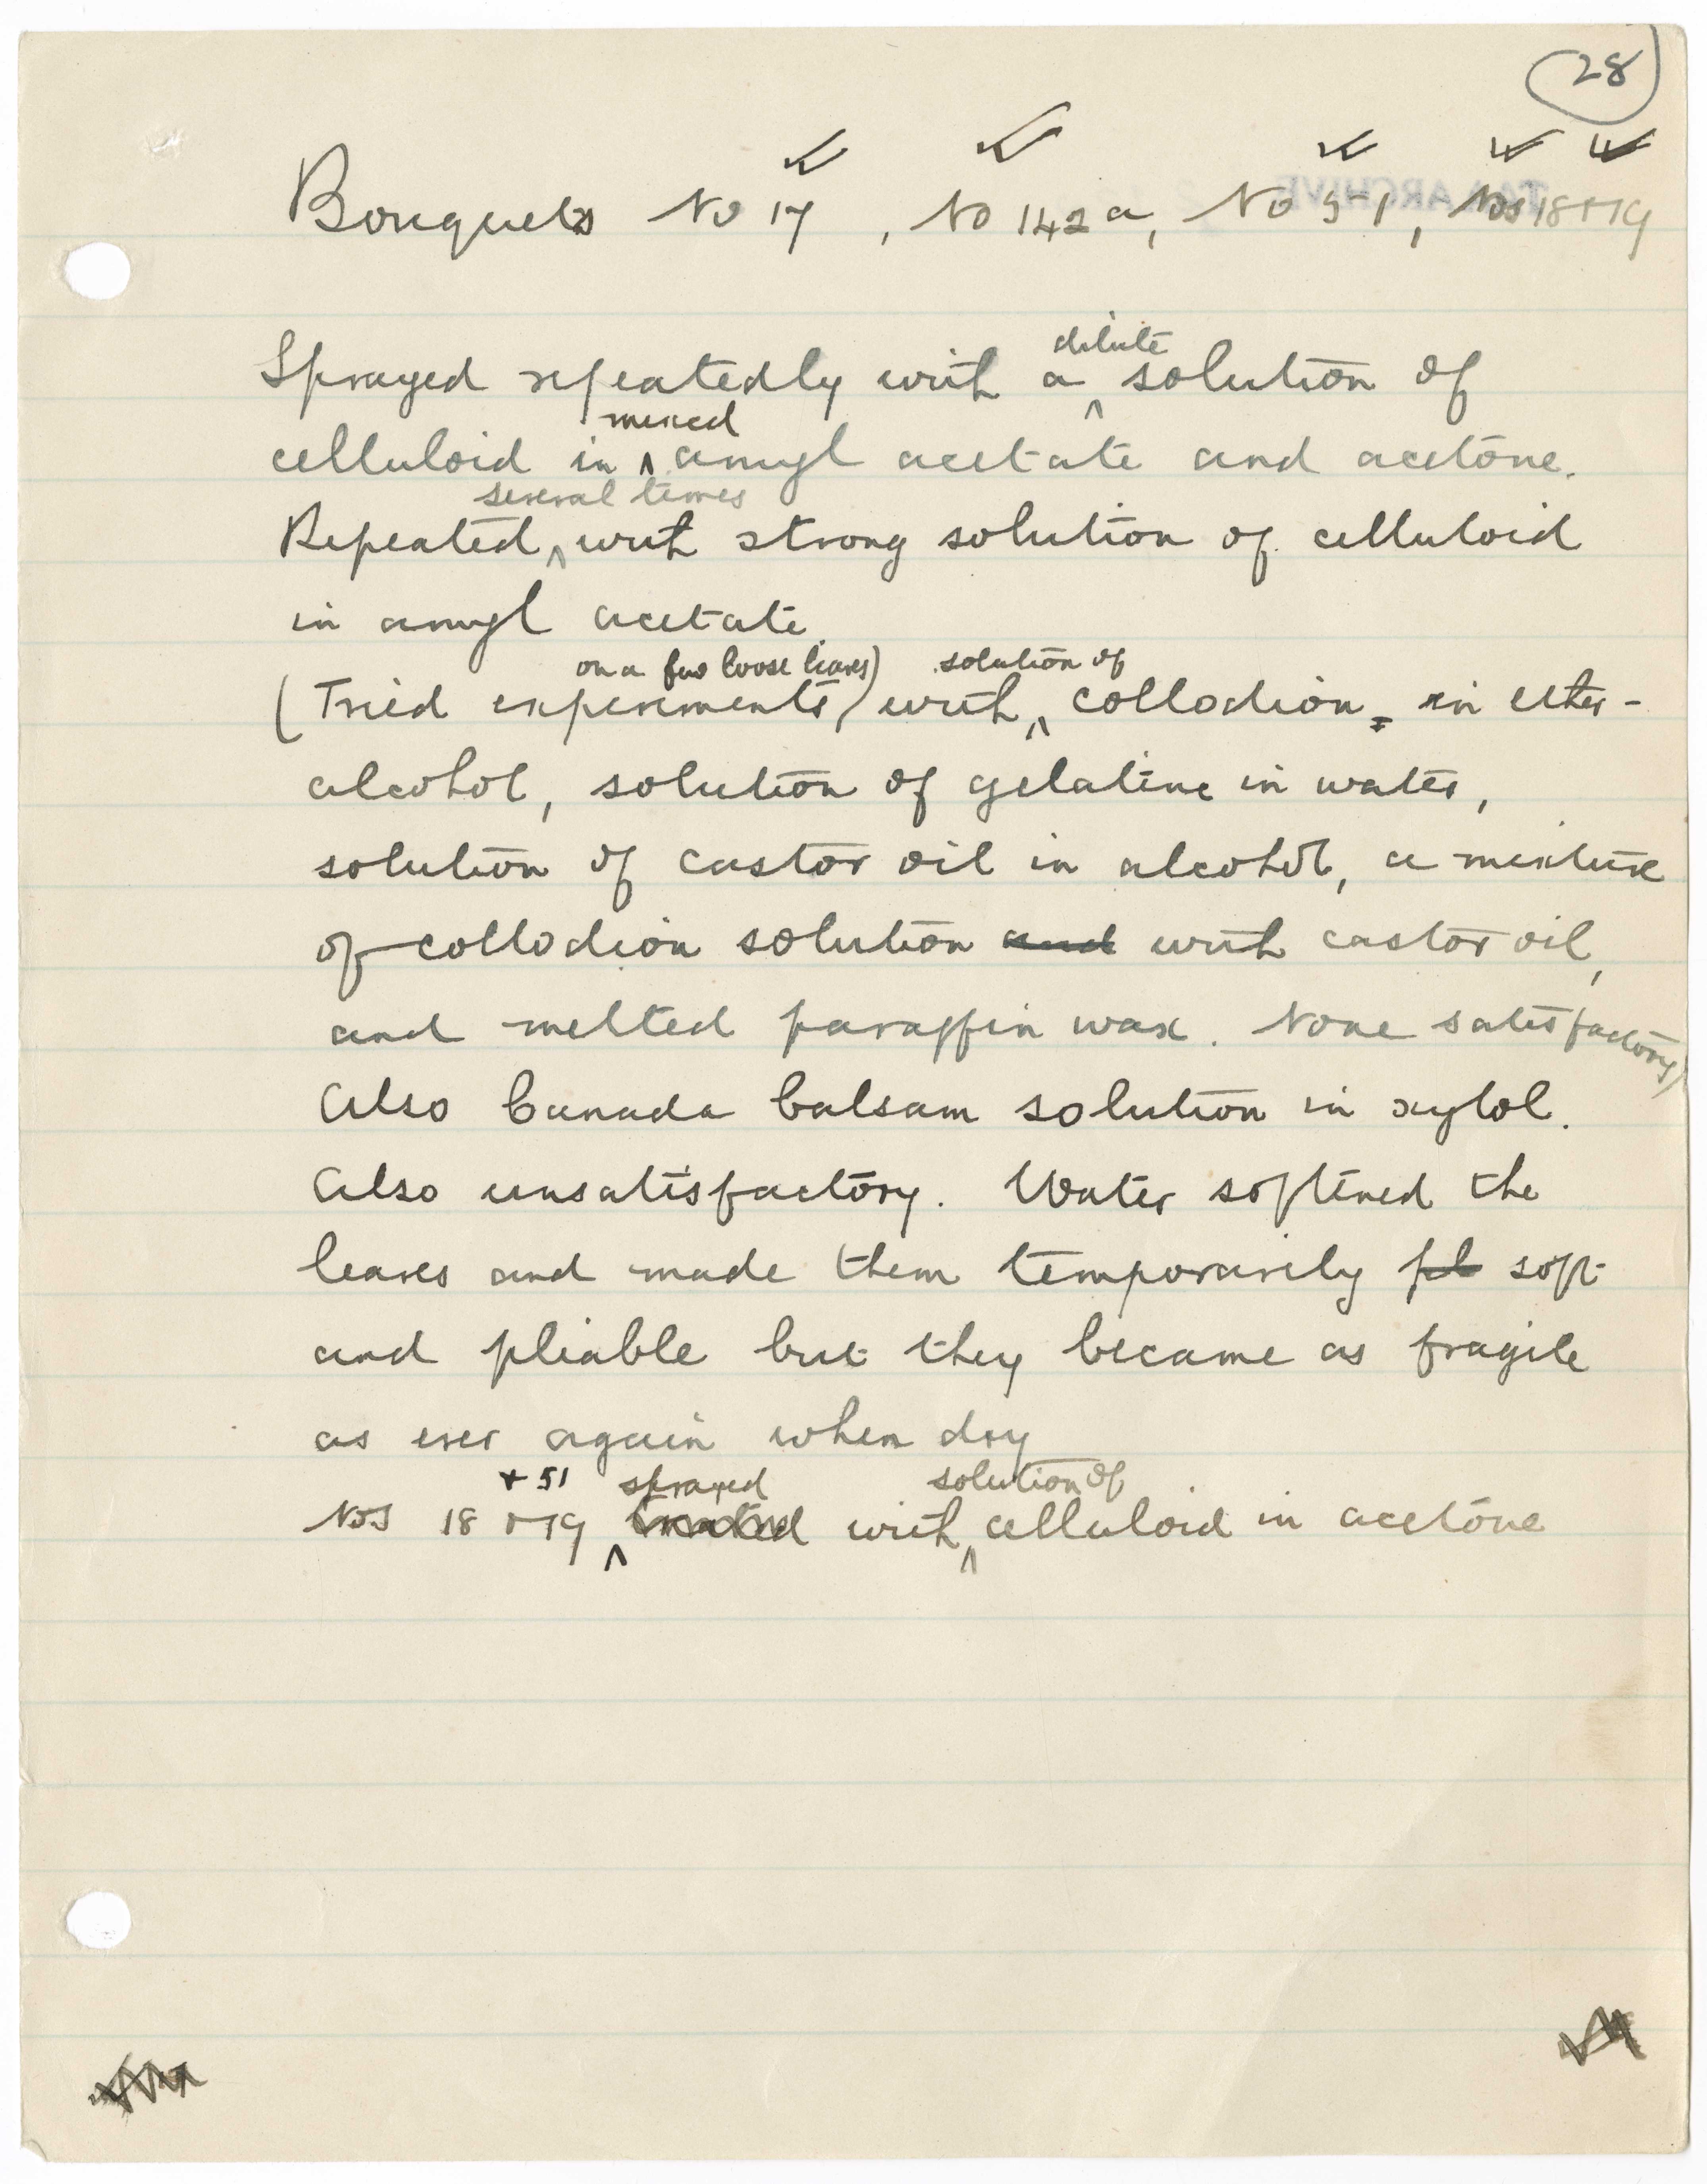 28
Bouquets No 17, No 142a, No 51, Nos 18+19
TAA ARCHIVE
dilute
Sprayed repeatedly with a solution of
mixed
celluloid in amyl acetate and acetone.
several times
Repeated with strong solution of celluloid
in amyl acetate
on a few loose leaves) solution of
(Tried experiments) with collodion in ether-
alcohol, solution of gelatine in water,
solution of castor oil in alcohol, a mixture
of collodion solution and with castor oil,
and melted paraffin wax. None satisfactory)
Also Canada balsam solution in xylol.
Also unsatisfactory. Water softened the
leaves and made them temporarily pl soft
and pliable but they became as fragile
as ever again when dry
+ 51 sprayed solution of
Nos 18+19 treated with celluloid in acetone